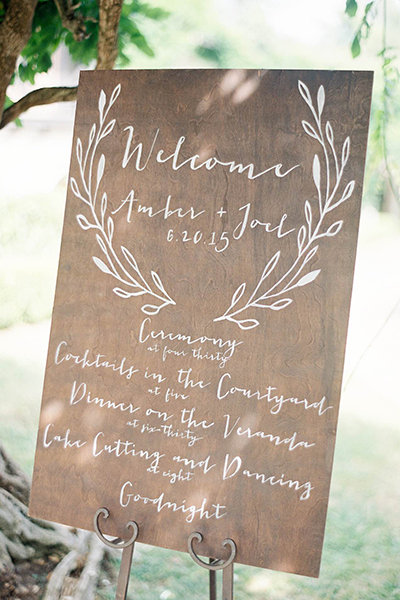 Welcome
Amber + Joel
6.20.15
Ceremony
at four thirty
Cocktails in the Courtyard
at five
Dinner on the Veranda
at six-thirty
Cake Cutting and Dancing
at eight
Goodnight